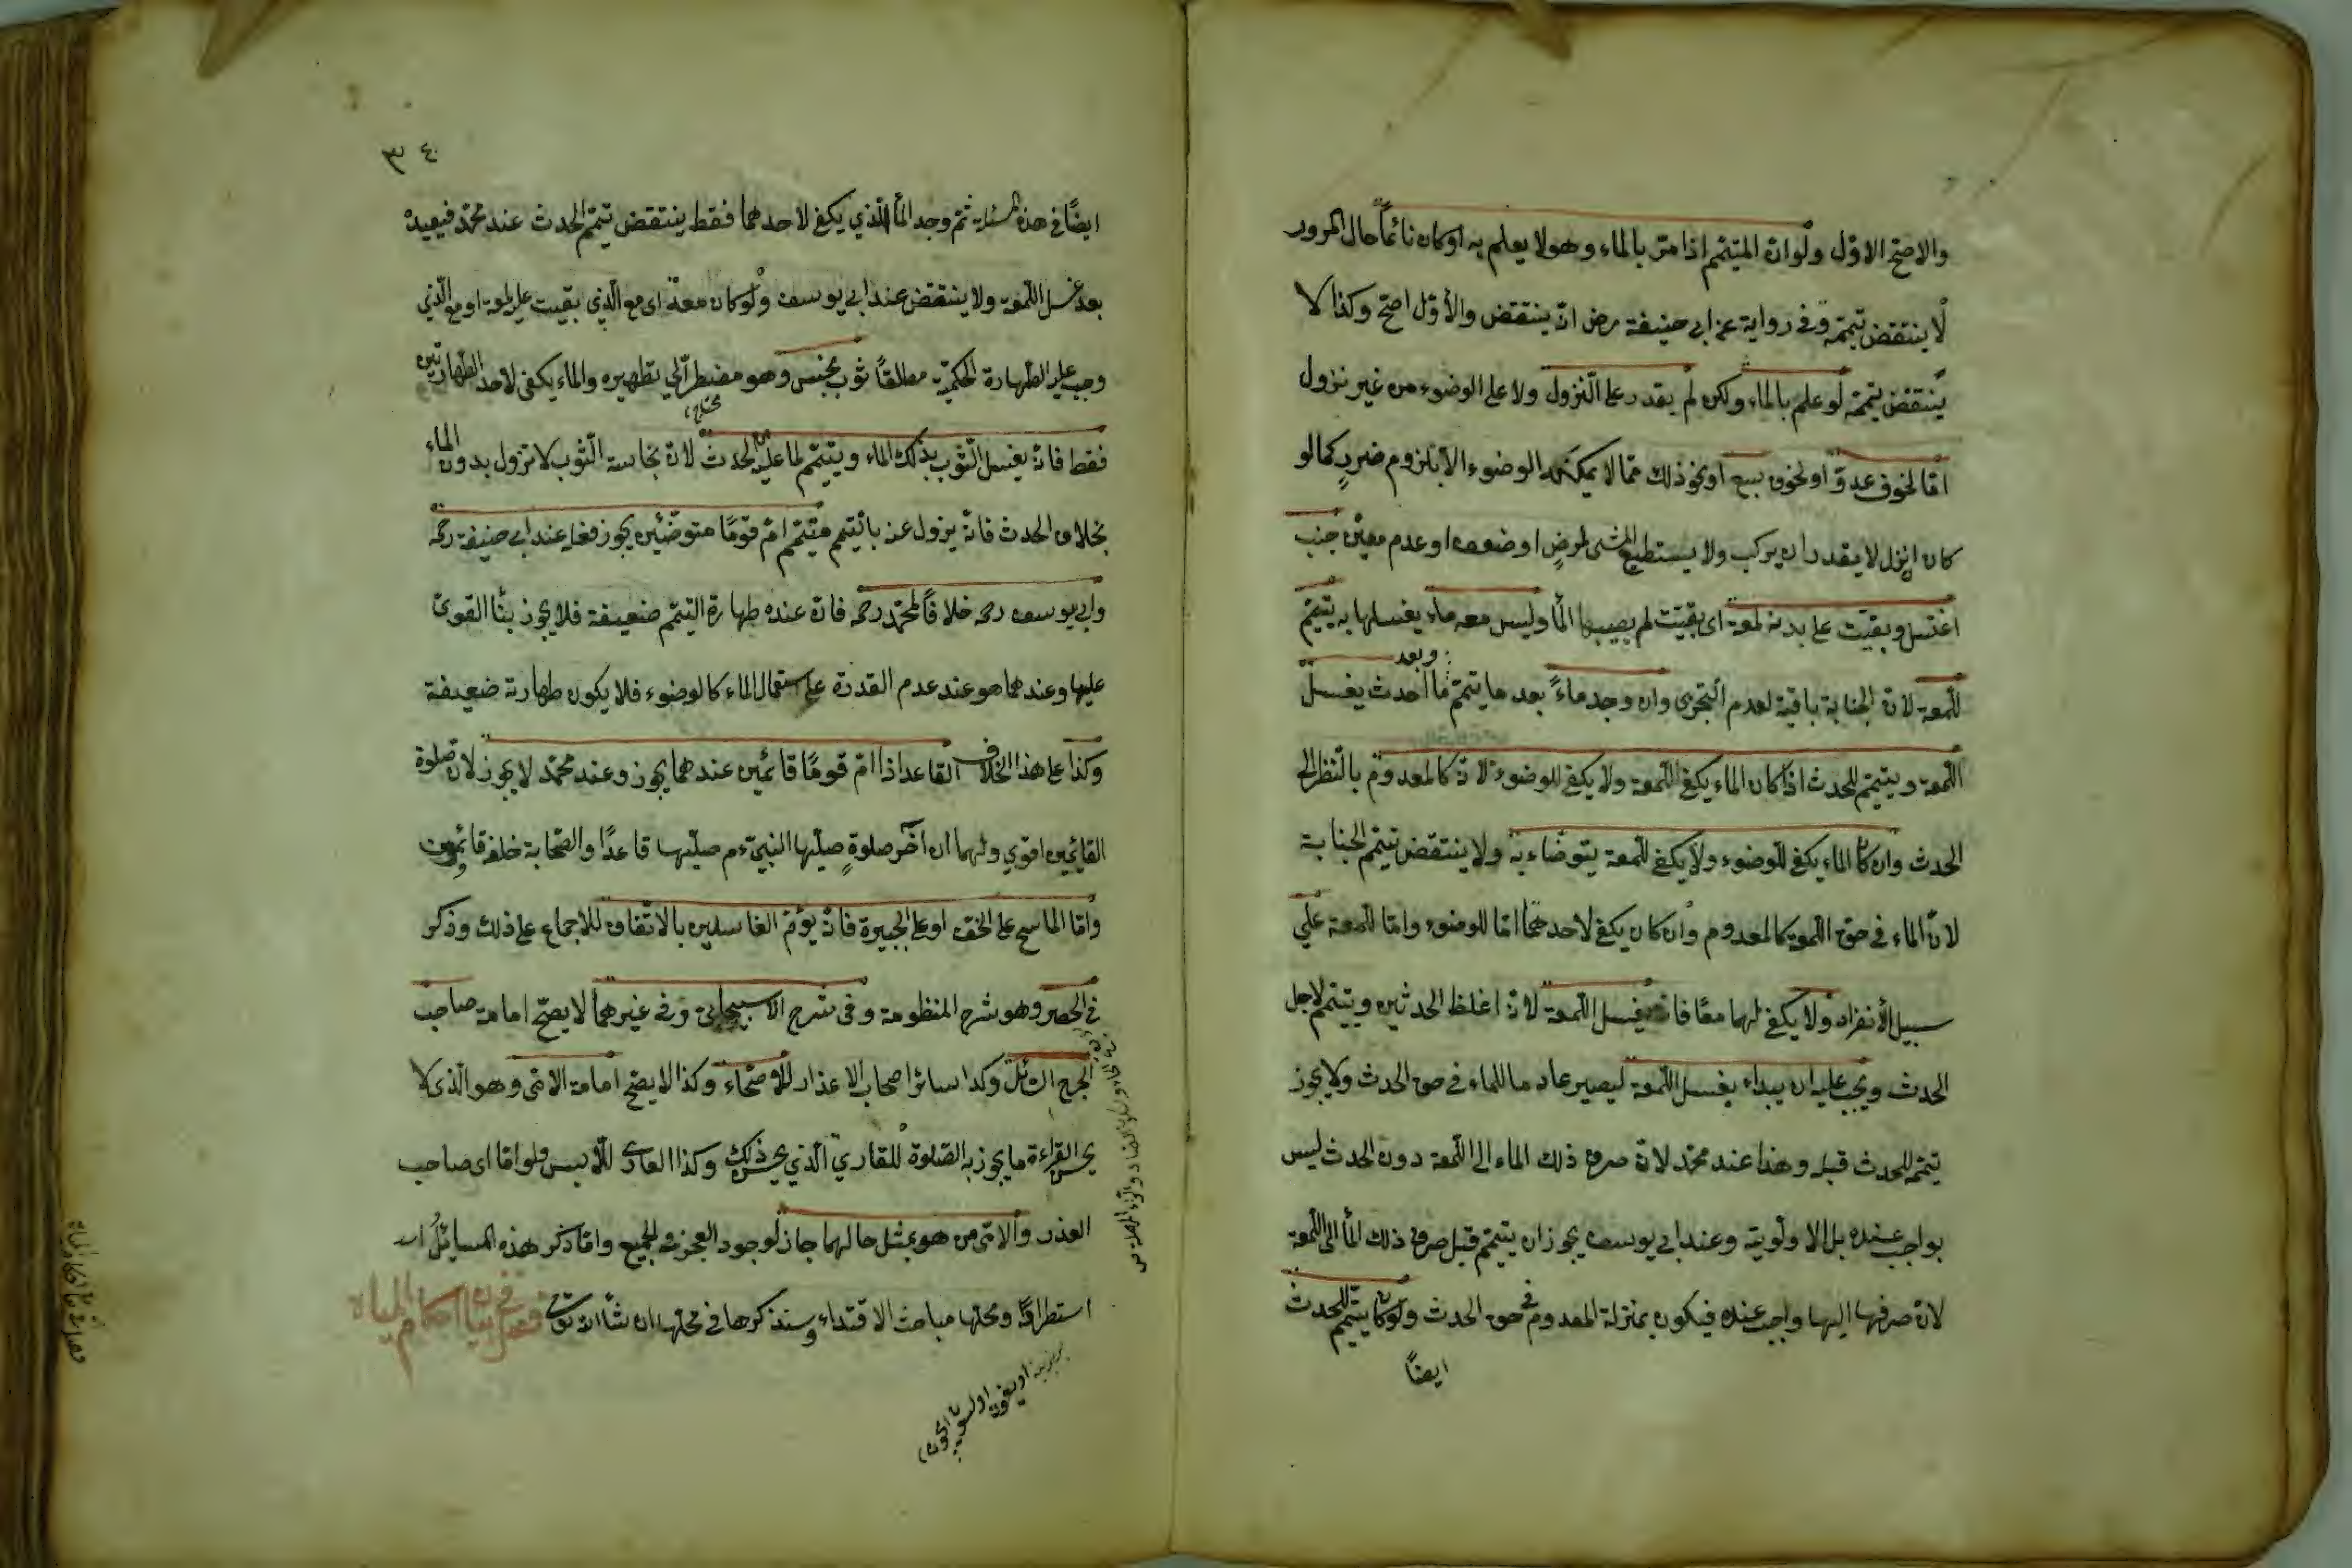 والاصح الاول ولو ان المتيمم اذا مر بالماء وهو لا يعلم به او كان نائماً حال المرور
لا ينتقض تيممه وفي رواية عن ابي حنيفة رض انه ينتقض والأول اصح وكذا لا
ينتقض تيممه لو علم بالماء ولكن لم يقدر على النزول ولا على الوضوء من غير نزول
اما لخوف عدو او لخوف سبع او نحو ذلك مما لا يمكنه الوضوء الا بلزوم ضرر كما لو
كان ان نزل لا يقدر ان يركب ولا يستطيع المشي لمرض او ضعف او عدم معين جنب
اغتسل وبقيت على بدنه لمعة اى بقيت لم يصبها الماء وليس معه ماء يغسلها به يتيمم
للمعة لان الجنابة باقية لعدم التجزى وان وجد ماءً بعد ما تيمم وبعد ما احدث يغسل
اللمعة ويتيمم للحدث اذا كان الماء يكفي اللمعة ولا يكفي للوضوء لانه كالمعدوم بالنظر الى
الحدث وان كان الماء يكفي للوضوء ولا يكفي للمعة يتوضاء به ولا ينتقض تيمم الجنابة
لان الماء في حق اللمعة كالمعدوم وان كان يكفي لاحدهما اما للوضوء واما للمعة على
سبيل الأنفراد ولا يكفي لهما معًا فانه يغسل اللمعة لانه اغلظ الحدثين ويتيمم لاجل
الحدث ويجب عليه ان يبداء بغسل اللمعة ليصير عادما للماء في حق الحدث ولا يجوز
تيممه للحدث قبله وهذا عند محمد لان صرف ذلك الماء الى اللمعة دون الحدث ليس
بواجب عنده بل الاولوية وعند ابي يوسف يجوز ان يتيمم قبل صرف ذلك الماء الى اللمعة
لان صرفها اليها واجب عنده فيكون بمنزلة المعدوم في حق الحدث ولو كان يتيمم للحدث
ايضاً
٣٤
ايضًا في هذه المسئلة ثم وجد الماء الذي يكفي لاحدهما فقط ينتقض تيمم الحدث عند محمد فيعيده
بعد غسل اللمعة ولا ينتقض عند ابي يوسف ولو كان معه اى مع الذي بقيت عليه لمعة او مع الذي
وجب عليه الطهارة الحكمية مطلقاً ثوب نجس وهو مضطر الي تطهيره والماء يكفي لاحد الطهارتين
محتاج
فقط فانه يغسل الثوب بذلك الماء ويتيمم لما عليه من الحدث لان نجاسة الثوب لا تزول بدون الماء
بخلاف الحدث فانه يزول عنه بالتيمم متيمم امّ قومًا متوضئين يجوز فعله عند ابي حنيفة رحمه
وابي يوسف رحمه خلافاً لمحمد رحمه فان عنده طهارة التيمم ضعيفة فلا يجوز بناء القوى
عليها وعندهما هو عند عدم القدرة على استعمال الماء كالوضوء فلا يكون طهارته ضعيفة
وكذا على هذا الخلاف القاعد اذا امّ قومًا قائمين عندهما يجوز وعند محمد لا يجوز لان صلوة
القائمين اقوي ولهما ان آخر صلوةٍ صليها النبي ءم صليها قاعدًا والصحابة خلفه قائمون
واما الماسح على الخف او على الجبيرة فانه يؤم الغاسلين بالاتفاق للاجماع على ذلك وذكر
في الحصر وهو شرح المنظومة وفي شرح الاسبيجابي وفي غيرهما لا يصح امامة صاحب
الجرح السائل وكذا سائر اصحاب الاعذار للاصحاء وكذا لا يصح امامة الامى وهو الذى لا
يحسن القراءة ما يجوز به الصلوة للقاري الذي يحسن ذلك وكذا العارى للابس ولو اما اى صاحب
العذر والامى من هو بمثل حالهما جاز لوجود العجز في الجميع واما ذكر هذه المسائل
استطرادًا ومحلها مباحث الاقتداء وسنذكرها في محلها ان شاء الله تعالى فصل في بيان احكام المياه